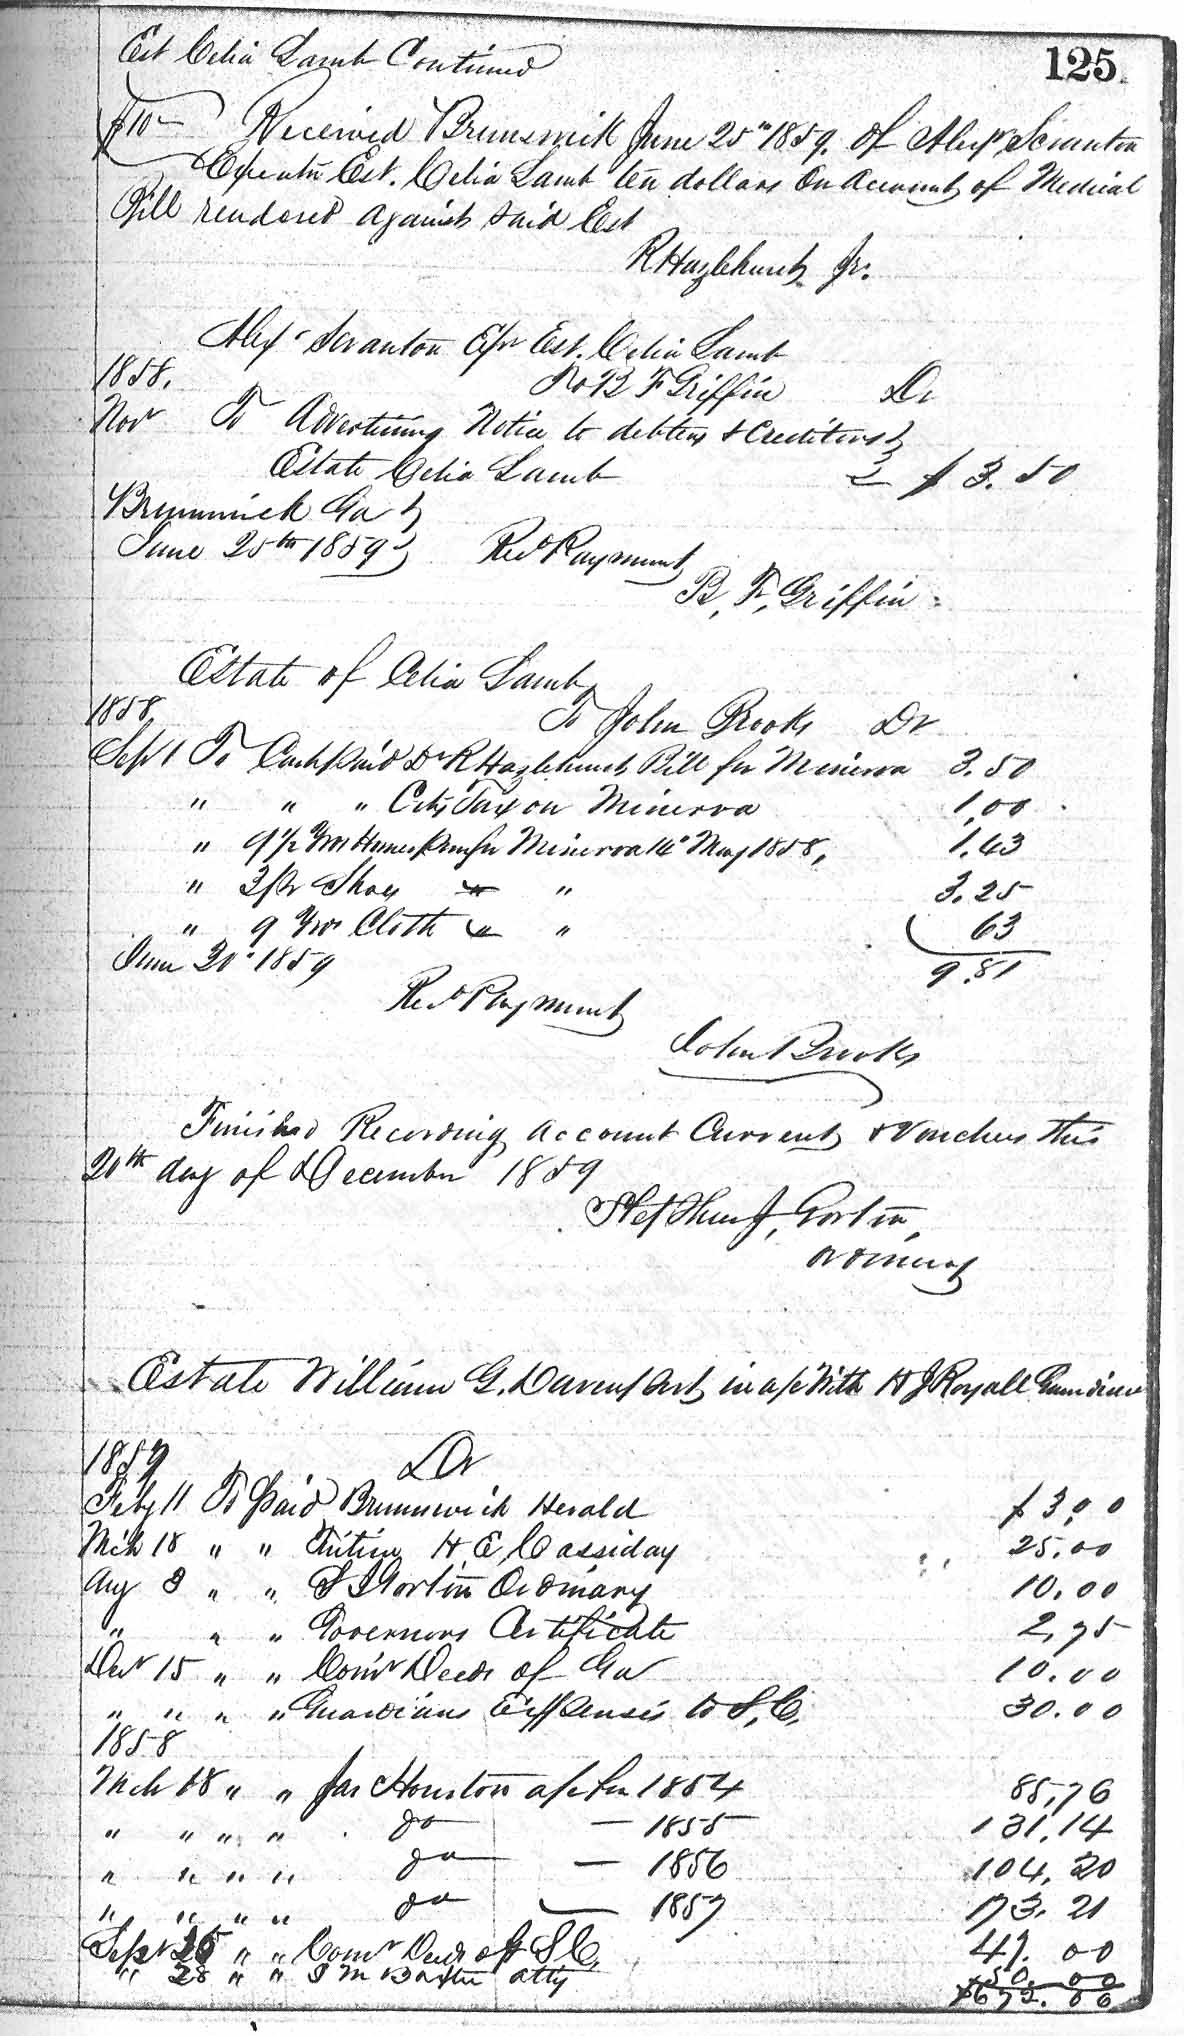 125
Est Celia Lamb Continued
$10— Received Brunswick June 25th 1859, of Alexr Scranton
Executor Est. Celia Lamb ten dollars on account of Medical
Bill rendered against said Est
R Hazlehurst Jr.
Alexr Scranton Exr Est. Celia Lamb
1858, To B F Griffin Dr
Novr To Advertising Notice to debtors & Creditors
Estate Celia Lamb $ 3.50
Brunswick Ga
June 25th 1859 Recd Payment
B, F, Griffin
Estate of Celia Lamb
1858 To John Brooks Dr
Sept 1 To Cash paid Dr R Hazlehurst Bill for Minerva 3.50
" " " City Tax on Minerva 1,00
" 9 1/2 Yrds Homespun for Minerva 14" May 1858, 1.43
" 3 pr Shoes " " 3.25
" 9 Yrds Cloth " " 63
June 30" 1859 9.81
Recd Payment
John Brooks
Finished Recording Account Current & Vouchers this
20th day of December 1859
Stephen J, Gorton,
Ordinary
Estate William G. Davenport in a/c With H J Royall Guardian
1857 Dr
Feby 11 To paid Brunswick Herald $ 3,00
Mch 18 " " Tuition H E Cassiday 25.00
Aug 3 " " S J Gorton Ordinary 10.00
" " " Governors Certificate 2,75
Decr 15 " " Comr Deeds of Ga 10.00
" " " " Guardians Expenses to S, C, 30.00
1858
Mch 18 " " Jas Houston a/c for 1854 85,76
" " " " do — 1855 131,14
" " " " do — 1856 104,20
" " " " do — 1857 173.21
Sept 25 " " Comr Deeds of S C, 47.00
" 28 " " atty 50.00
$672.06